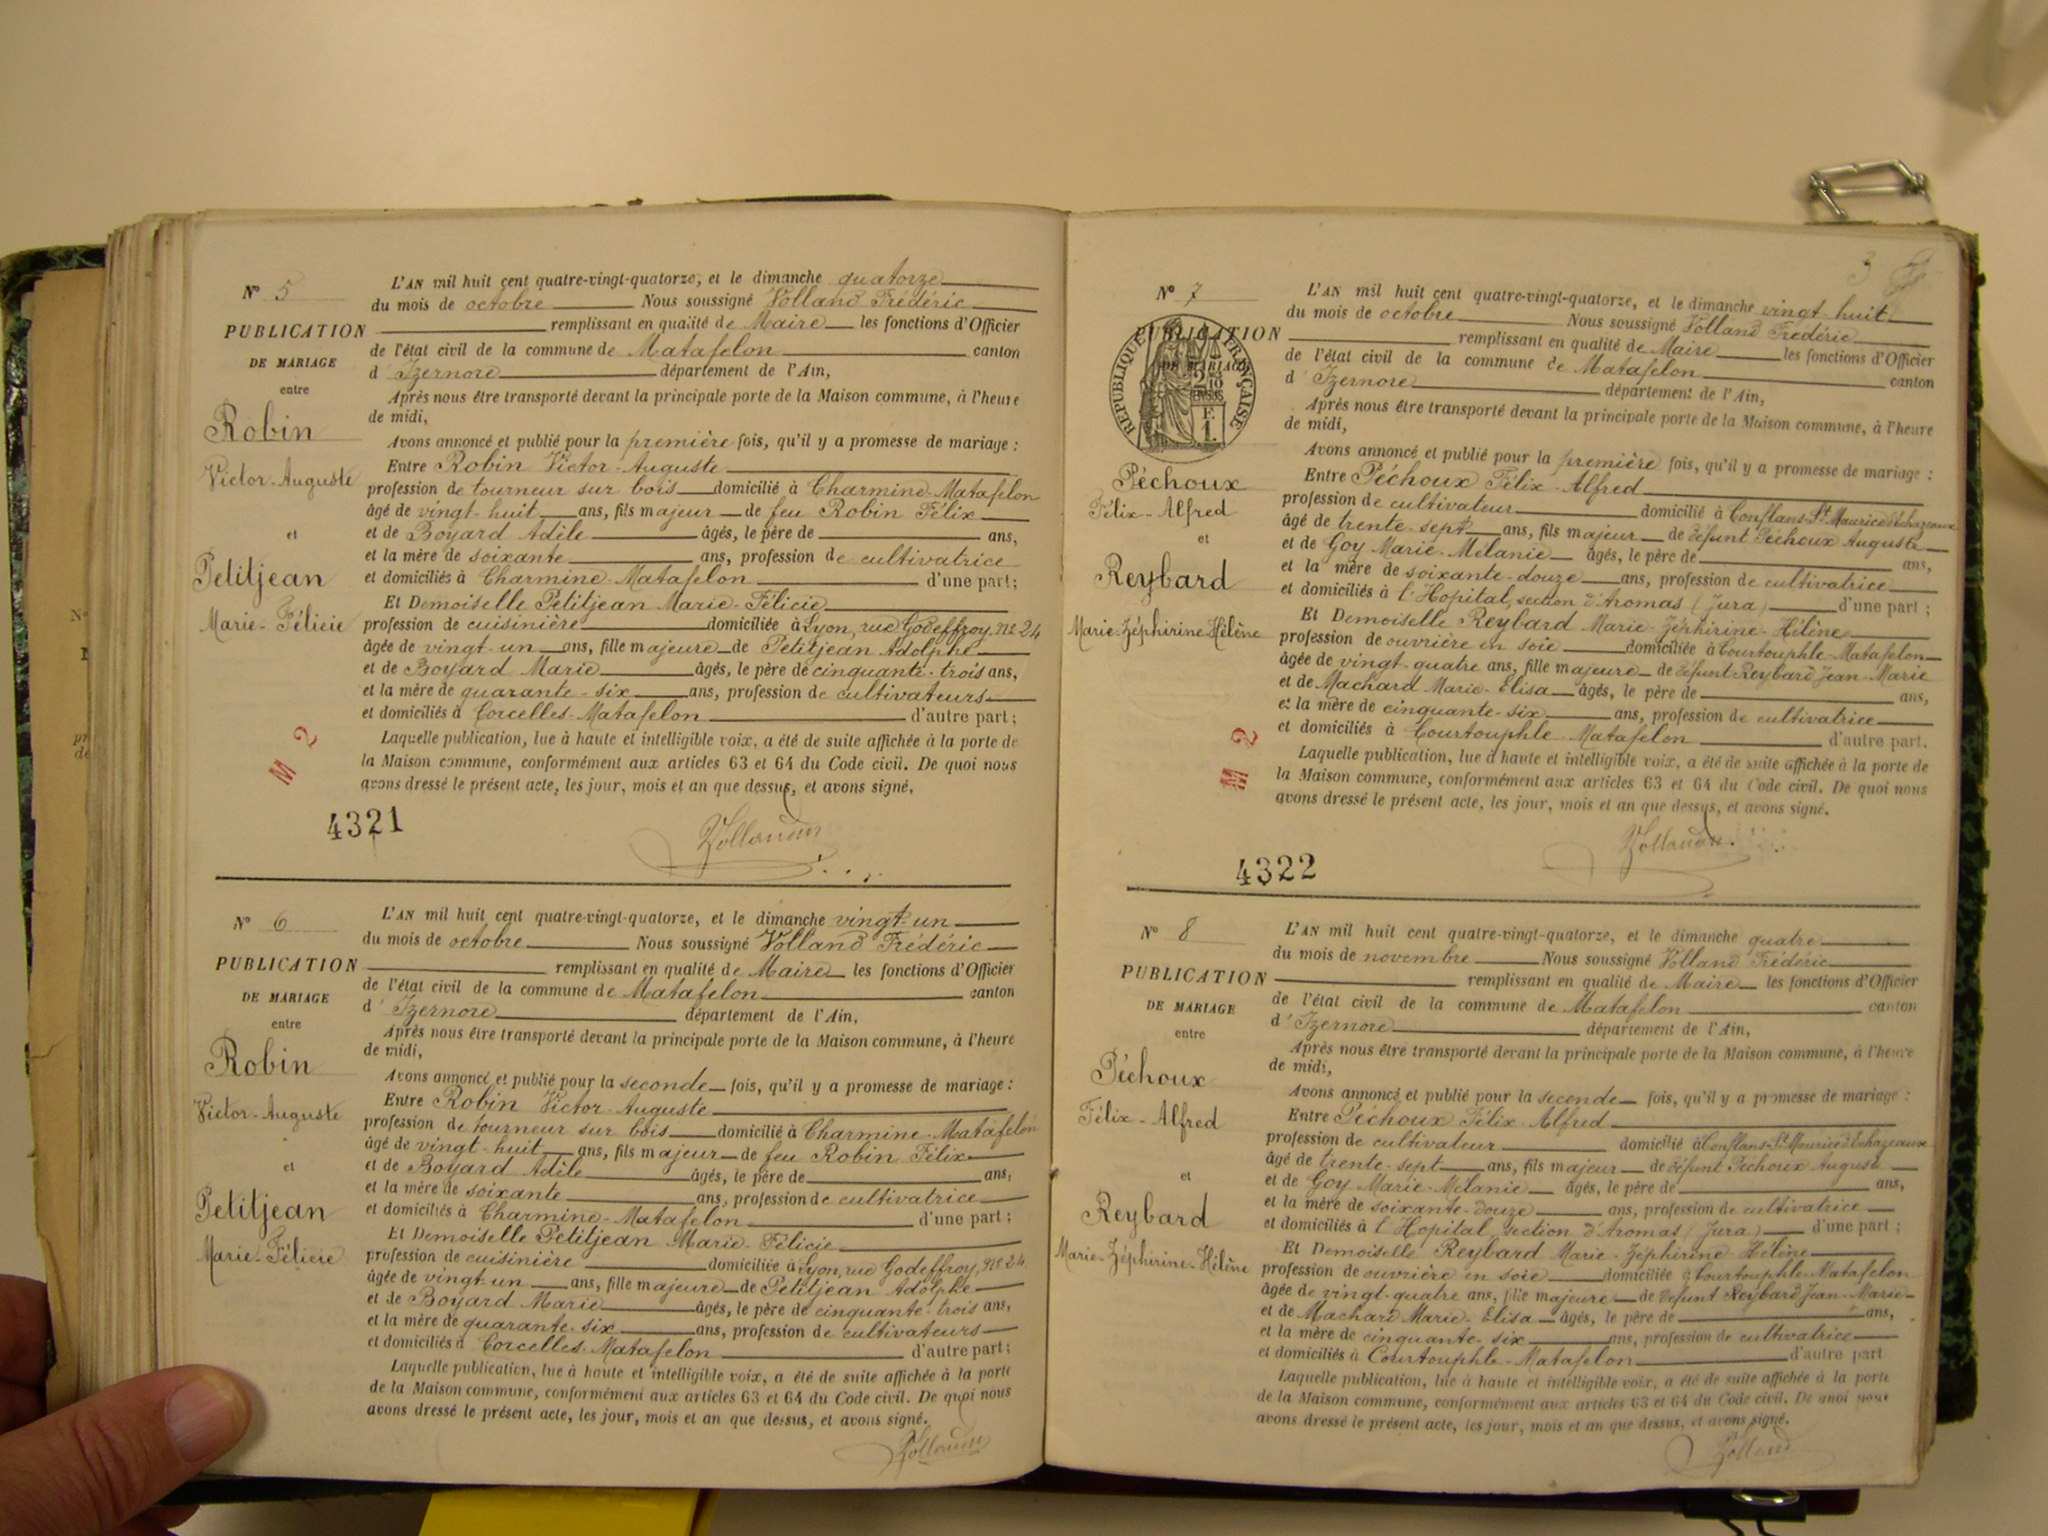 N° 5
PUBLICATION
DE MARIAGE
entre
Robin
Victor-Auguste
et
Petitjean
Marie-Félicie
L'AN mil huit cent quatre-vingt-quatorze, et le dimanche quatorze
du mois de octobre Nous soussigné Volland Frédéric
remplissant en qualité de Maire les fonctions d'Officier
de l'état civil de la commune de Matafelon canton
d'Izernore département de l'Ain,
Après nous être transporté devant la principale porte de la Maison commune, à l'heure
de midi,
Avons annoncé et publié pour la première fois, qu'il y a promesse de mariage :
Entre Robin Victor-Auguste
profession de tourneur sur bois domicilié à Charmine-Matafelon
âgé de vingt-huit ans, fils majeur de feu Robin Félix
et de Boyard Adèle âgés, le père de ans,
et la mère de soixante ans, profession de cultivatrice
et domiciliés à Charmine-Matafelon d'une part;
Et Demoiselle Petitjean Marie-Félicie
profession de cuisinière domiciliée à Lyon, rue Godeffroy, N° 24
âgée de vingt-un ans, fille majeure de Petitjean Adolphe
et de Boyard Marie âgés, le père de cinquante-trois ans,
et la mère de quarante-six ans, profession de cultivateurs
et domiciliés à Corcelles-Matafelon d'autre part;
Laquelle publication, lue à haute et intelligible voix, a été de suite affichée à la porte de
la Maison commune, conformément aux articles 63 et 64 du Code civil. De quoi nous
avons dressé le présent acte, les jour, mois et an que dessus, et avons signé.
M 2
4321
Volland
N° 6
PUBLICATION
DE MARIAGE
entre
Robin
Victor-Auguste
et
Petitjean
Marie-Félicie
L'AN mil huit cent quatre-vingt-quatorze, et le dimanche vingt-un
du mois de octobre Nous soussigné Volland Frédéric
remplissant en qualité de Maire les fonctions d'Officier
de l'état civil de la commune de Matafelon canton
d'Izernore département de l'Ain,
Après nous être transporté devant la principale porte de la Maison commune, à l'heure
de midi,
Avons annoncé et publié pour la seconde fois, qu'il y a promesse de mariage :
Entre Robin Victor-Auguste
profession de tourneur sur bois domicilié à Charmine-Matafelon
âgé de vingt-huit ans, fils majeur de feu Robin Félix
et de Boyard Adèle âgés, le père de ans,
et la mère de soixante ans, profession de cultivatrice
et domiciliés à Charmine-Matafelon d'une part;
Et Demoiselle Petitjean Marie-Félicie
profession de cuisinière domiciliée à Lyon, rue Godeffroy, N° 24
âgée de vingt-un ans, fille majeure de Petitjean Adolphe
et de Boyard Marie âgés, le père de cinquante-trois ans,
et la mère de quarante-six ans, profession de cultivateurs
et domiciliés à Corcelles-Matafelon d'autre part;
Laquelle publication, lue à haute et intelligible voix, a été de suite affichée à la porte
de la Maison commune, conformément aux articles 63 et 64 du Code civil. De quoi nous
avons dressé le présent acte, les jour, mois et an que dessus, et avons signé.
Volland
3
N° 7
PUBLICATION
DE MARIAGE
RÉPUBLIQUE FRANÇAISE
Péchoux
Félix-Alfred
et
Reybard
Marie-Zéphirine-Hélène
L'AN mil huit cent quatre-vingt-quatorze, et le dimanche vingt-huit
du mois de octobre Nous soussigné Volland Frédéric
remplissant en qualité de Maire les fonctions d'Officier
de l'état civil de la commune de Matafelon canton
d'Izernore département de l'Ain,
Après nous être transporté devant la principale porte de la Maison commune, à l'heure
de midi,
Avons annoncé et publié pour la première fois, qu'il y a promesse de mariage :
Entre Péchoux Félix-Alfred
profession de cultivateur domicilié à Conflans-St Maurice d'Echazeaux
âgé de trente-sept ans, fils majeur de défunt Péchoux Auguste
et de Goy Marie-Mélanie âgés, le père de ans,
et la mère de soixante-douze ans, profession de cultivatrice
et domiciliés à l'Hopital, section d'Aromas (Jura) d'une part ;
Et Demoiselle Reybard Marie-Zéphirine-Hélène
profession de ouvrière en soie domiciliée à Courtouphle-Matafelon
âgée de vingt-quatre ans, fille majeure de défunt Reybard Jean-Marie
et de Machard Marie-Elisa âgés, le père de ans,
et la mère de cinquante-six ans, profession de cultivatrice
et domiciliés à Courtouphle-Matafelon d'autre part.
Laquelle publication, lue à haute et intelligible voix, a été de suite affichée à la porte de
la Maison commune, conformément aux articles 63 et 64 du Code civil. De quoi nous
avons dressé le présent acte, les jour, mois et an que dessus, et avons signé.
M 2
4322
Volland
N° 8
PUBLICATION
DE MARIAGE
entre
Péchoux
Félix-Alfred
et
Reybard
Marie-Zéphirine-Hélène
L'AN mil huit cent quatre-vingt-quatorze, et le dimanche quatre
du mois de novembre Nous soussigné Volland Frédéric
remplissant en qualité de Maire les fonctions d'Officier
de l'état civil de la commune de Matafelon canton
d'Izernore département de l'Ain,
Après nous être transporté devant la principale porte de la Maison commune, à l'heure
de midi,
Avons annoncé et publié pour la seconde fois, qu'il y a promesse de mariage :
Entre Péchoux Félix-Alfred
profession de cultivateur domicilié à Conflans-St Maurice d'Echazeaux
âgé de trente-sept ans, fils majeur de défunt Péchoux Auguste
et de Goy Marie-Mélanie âgés, le père de ans,
et la mère de soixante-douze ans, profession de cultivatrice
et domiciliés à l'Hopital section d'Aromas (Jura) d'une part ;
Et Demoiselle Reybard Marie-Zéphirine Hélène
profession de ouvrière en soie domiciliée à Courtouphle-Matafelon
âgée de vingt-quatre ans, fille majeure de défunt Reybard Jean-Marie
et de Machard Marie-Elisa âgés, le père de ans,
et la mère de cinquante-six ans, profession de cultivatrice
et domiciliés à Courtouphle-Matafelon d'autre part
Laquelle publication, lue à haute et intelligible voix, a été de suite affichée à la porte
de la Maison commune, conformément aux articles 63 et 64 du Code civil. De quoi nous
avons dressé le présent acte, les jour, mois et an que dessus, et avons signé.
Volland